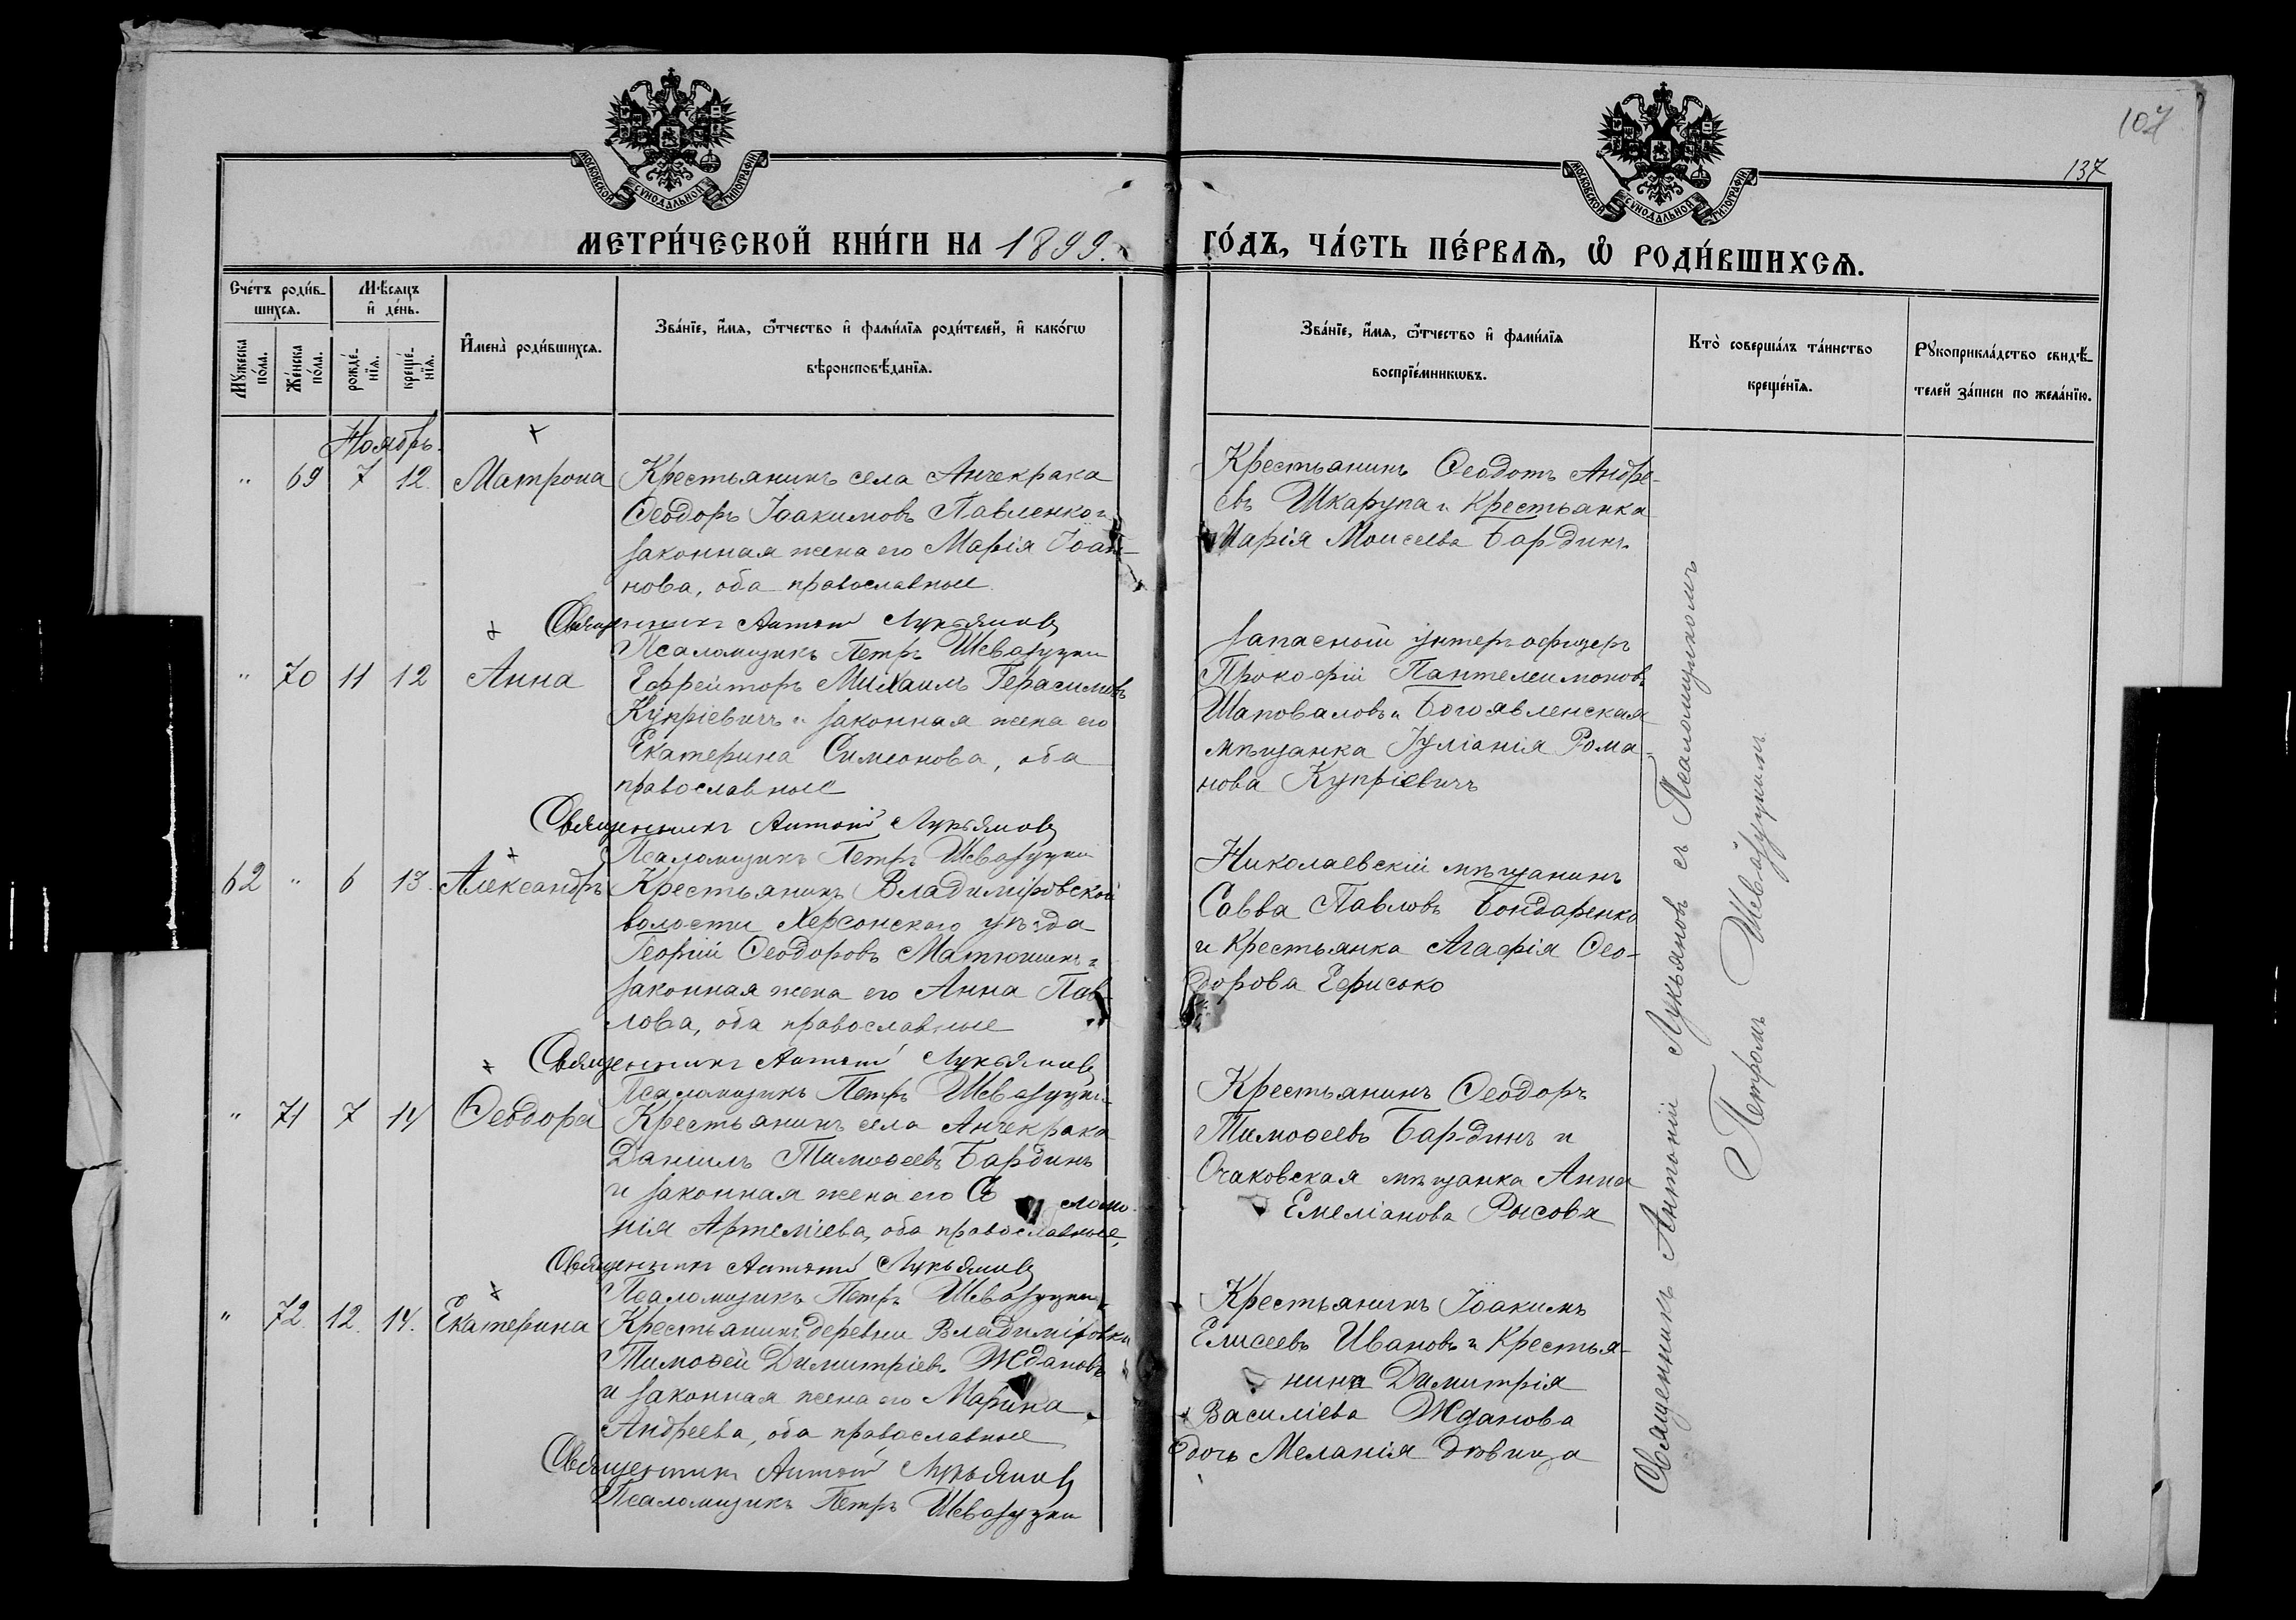 107
137
МОСКОВСКОЙ СѴНОДАЛЬНОЙ ТИПОГРАФІИ
МОСКОВСКОЙ СѴНОДАЛЬНОЙ ТИПОГРАФІИ
МЕТРИ́ЧЕСКОЙ КНИ́ГИ НА 1899.
ГО́ДЪ, ЧА́СТЬ ПЕ́РВАѦ, Ѡ҆ РОДИ́ВШИХСѦ.
Сче́тъ роди́в-
шихсѧ.
Мѣ́сѧцъ
и҆ де́нь.
Мꙋ́жеска
по́ла.
Же́нска
по́ла.
рожде́-
нїѧ.
креще́-
нїѧ.
И҆мена̀ роди́вшихсѧ.
Зва́нїе, и҆́мѧ, ѻ҆́тчество и҆ фами́лїѧ роди́телей, и҆ како́гѡ
вѣроисповѣ́данїѧ.
Зва́нїе, и҆́мѧ, ѻ҆́тчество и҆ фами́лїѧ
воспрїе́мникѡвъ.
Кто̀ соверша́лъ та́инство
креще́нїѧ.
Рꙋкоприкла́дство свидѣ́-
телей за́писи по жела́нїю.
Ноябрь.
" 69 7 12. Матрона
Крестьянинъ села Анчекрака
Ѳеодоръ Іоакимовъ Павленко и
законная жена его Марія Іоан-
нова, оба православные
Священникъ Антоній Лукьяновъ
Псаломщикъ Петръ
Крестьянинъ Ѳеодотъ Андре-
евъ Шкарупа и Крестьянка
Марія Моисеева Бардинъ.
" 70 11 12 Анна
Ефрейторъ Михаилъ Герасимовъ
Купріевичъ и законная жена его
Екатерина Симеонова, оба
православные
Священникъ Антоній Лукьяновъ
Псаломщикъ Петръ
Запасный унтеръ офицеръ
Прокофій Пантелеимоновъ
Шаповаловъ и Богоявленская
мѣщанка Іуліанія Рома-
нова Купріевичъ
62 " 6 13. Александръ
Крестьянинъ Владиміровской
волости Херсонскаго уѣзда
Георгій Ѳеодоровъ Матюшинъ и
законная жена его Анна Пав-
лова, оба православные
Священникъ Антоній Лукьяновъ
Псаломщикъ Петръ
Николаевскій мѣщанинъ
Савва Павловъ Бондаренко
и Крестьянка Агафія Ѳео-
дорова Ефисько
" 71 7 14 Ѳеодора
Крестьянинъ села Анчекрака
Даніилъ Тимоѳеевъ Бардинъ
и законная жена его Со ломо-
нія Артеміева, оба православные,
Священникъ Антоній Лукьяновъ
Псаломщикъ Петръ
Крестьянинъ Ѳеодоръ
Тимоѳеевъ Бардинъ и
Очаковская мѣщанка Анна
Емеліанова Рысова
" 72. 12. 14. Екатерина
Крестьянинъ деревни Владиміровки
Тимоѳей Димитріевъ Ждановъ
и законная жена его Марина
Андреева, оба православные
Священникъ Антоній Лукьяновъ
Псаломщикъ Петръ
Крестьянинъ Іоакимъ
Елисеевъ Ивановъ и Крестья-
нина Димитрія
Василіева Жданова
дочь Меланія дѣвица
Священникъ Антоній Лукьяновъ съ Псаломщикомъ
Петромъ